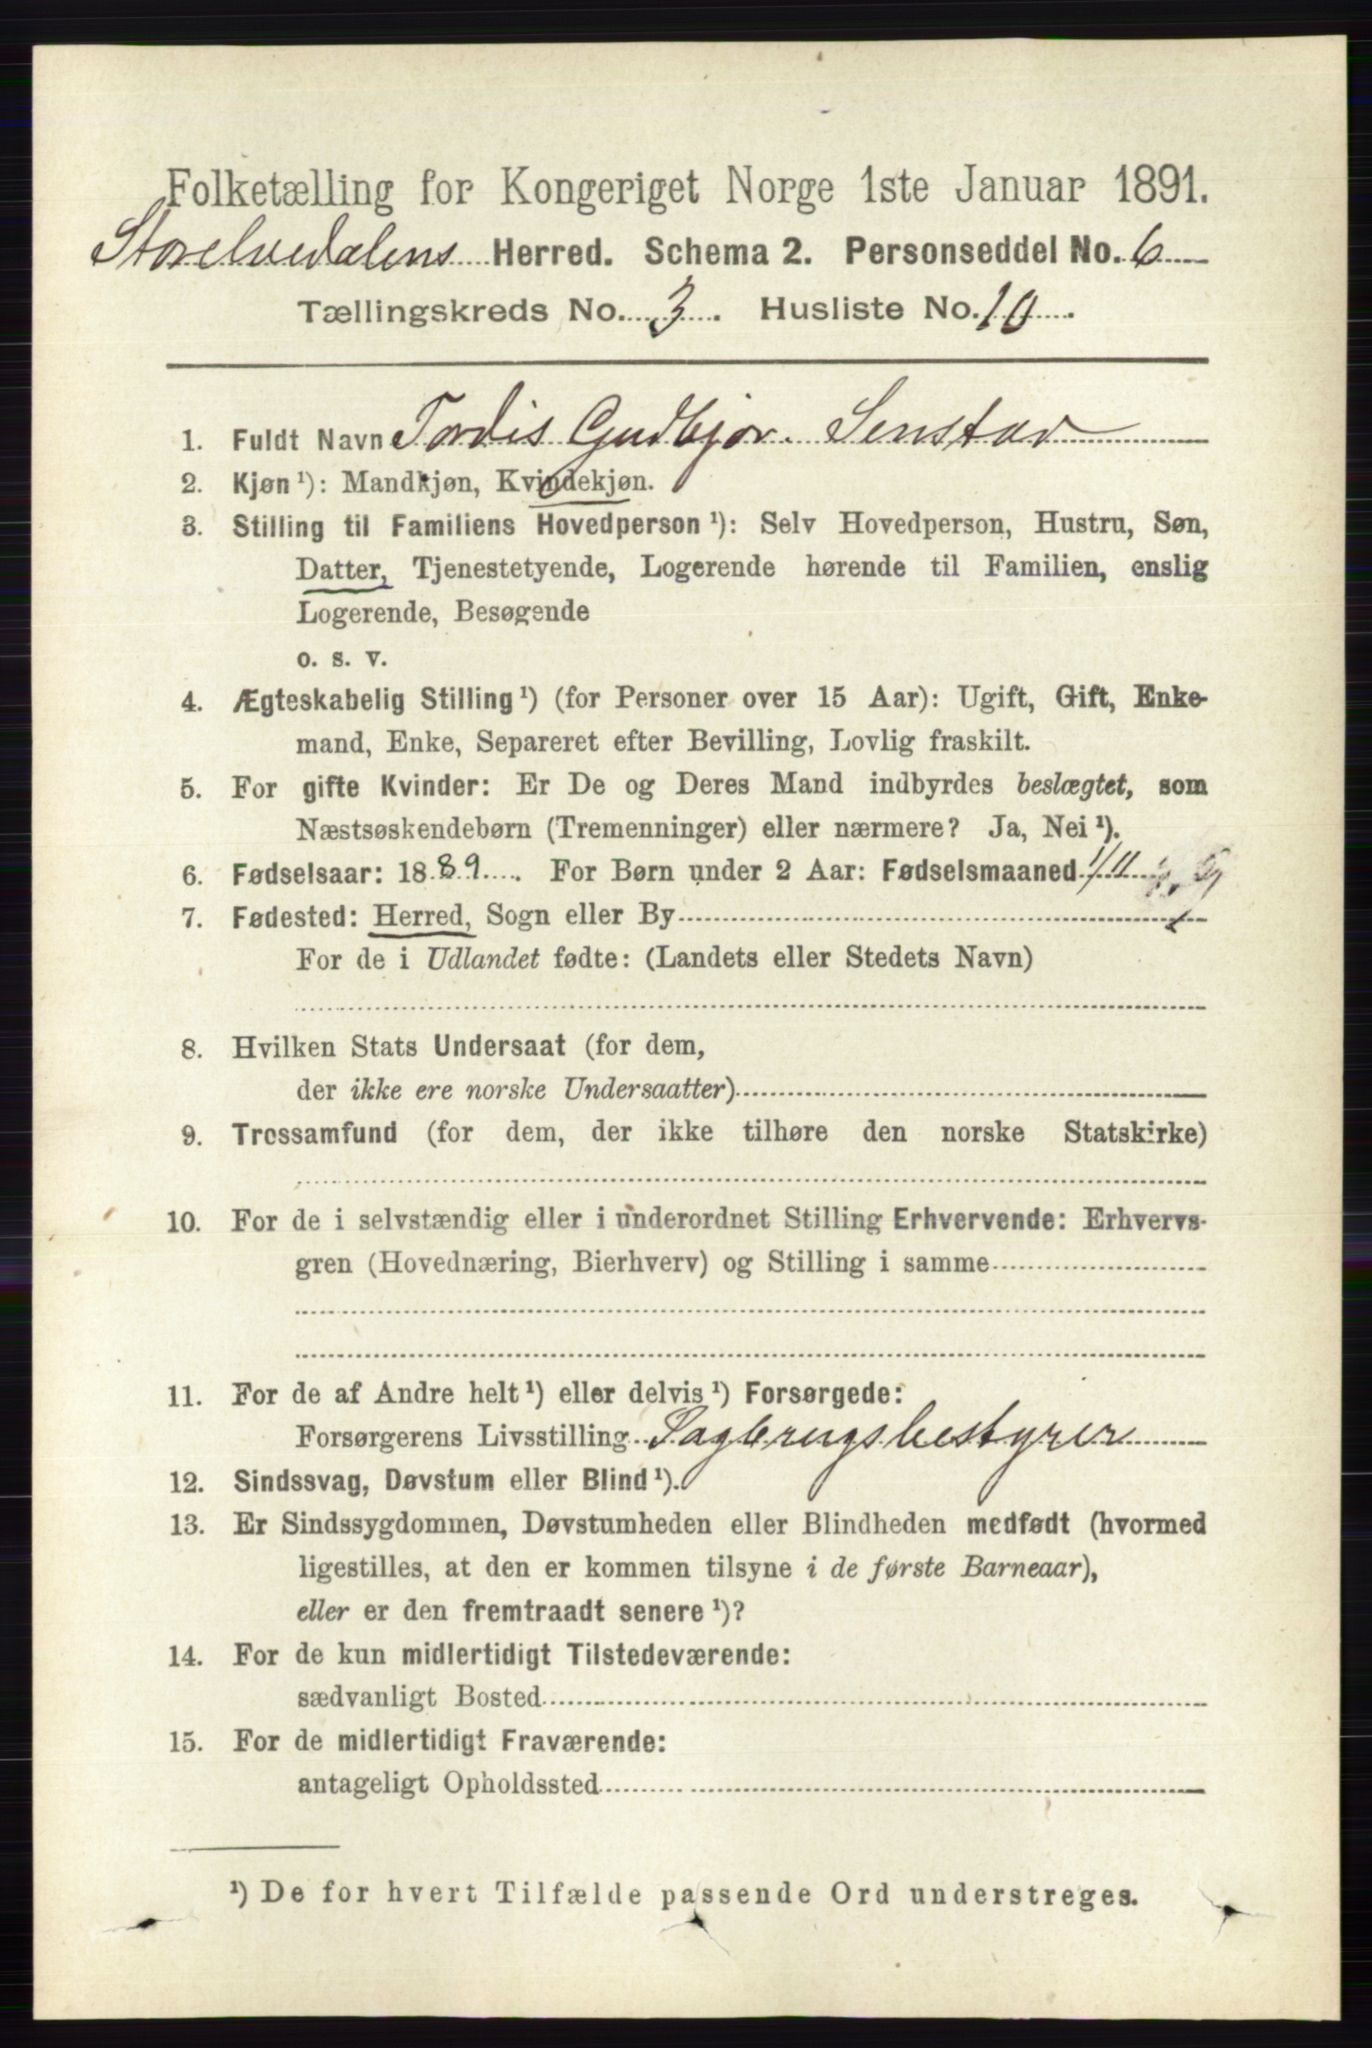 Folketælling for Kongeriget Norge 1ste Januar 1891.
Storelvedalens Herred. Schema 2. Personseddel No. 6
Tællingskreds No. 3. Husliste No. 10.
1. Fuldt Navn Tordis Gudbjør Senstad
2. Kjøn ¹): Mandkjøn, Kvindekjøn.
3. Stilling til Familiens Hovedperson ¹): Selv Hovedperson, Hustru, Søn,
Datter, Tjenestetyende, Logerende hørende til Familien, enslig
Logerende, Besøgende
o. s. v.
4. Ægteskabelig Stilling ¹) (for Personer over 15 Aar): Ugift, Gift, Enke-
mand, Enke, Separeret efter Bevilling, Lovlig fraskilt.
5. For gifte Kvinder: Er De og Deres Mand indbyrdes beslægtet, som
Næstsøskendebørn (Tremenninger) eller nærmere? Ja, Nei ¹).
6. Fødselsaar: 1889. For Børn under 2 Aar: Fødselsmaaned 1/11
7. Fødested: Herred, Sogn eller By
For de i Udlandet fødte: (Landets eller Stedets Navn)
8. Hvilken Stats Undersaat (for dem,
der ikke ere norske Undersaatter)
9. Trossamfund (for dem, der ikke tilhøre den norske Statskirke)
10. For de i selvstændig eller i underordnet Stilling Erhvervende: Erhvervs-
gren (Hovednæring, Bierhverv) og Stilling i samme
11. For de af Andre helt ¹) eller delvis ¹) Forsørgede:
Forsørgerens Livsstilling Sagbrugsbestyrer
12. Sindssvag, Døvstum eller Blind ¹).
13. Er Sindssygdommen, Døvstumheden eller Blindheden medfødt (hvormed
ligestilles, at den er kommen tilsyne i de første Barneaar),
eller er den fremtraadt senere ¹)?
14. For de kun midlertidigt Tilstedeværende:
sædvanligt Bosted
15. For de midlertidigt Fraværende:
antageligt Opholdssted
¹) De for hvert Tilfælde passende Ord understreges.